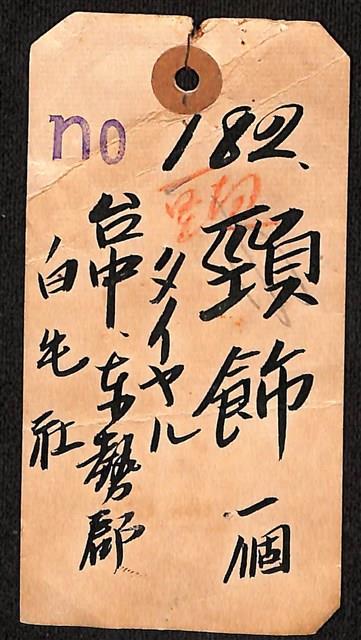 no 182、
頸飾 一個
タイヤル
台中、东勢郡
白毛社